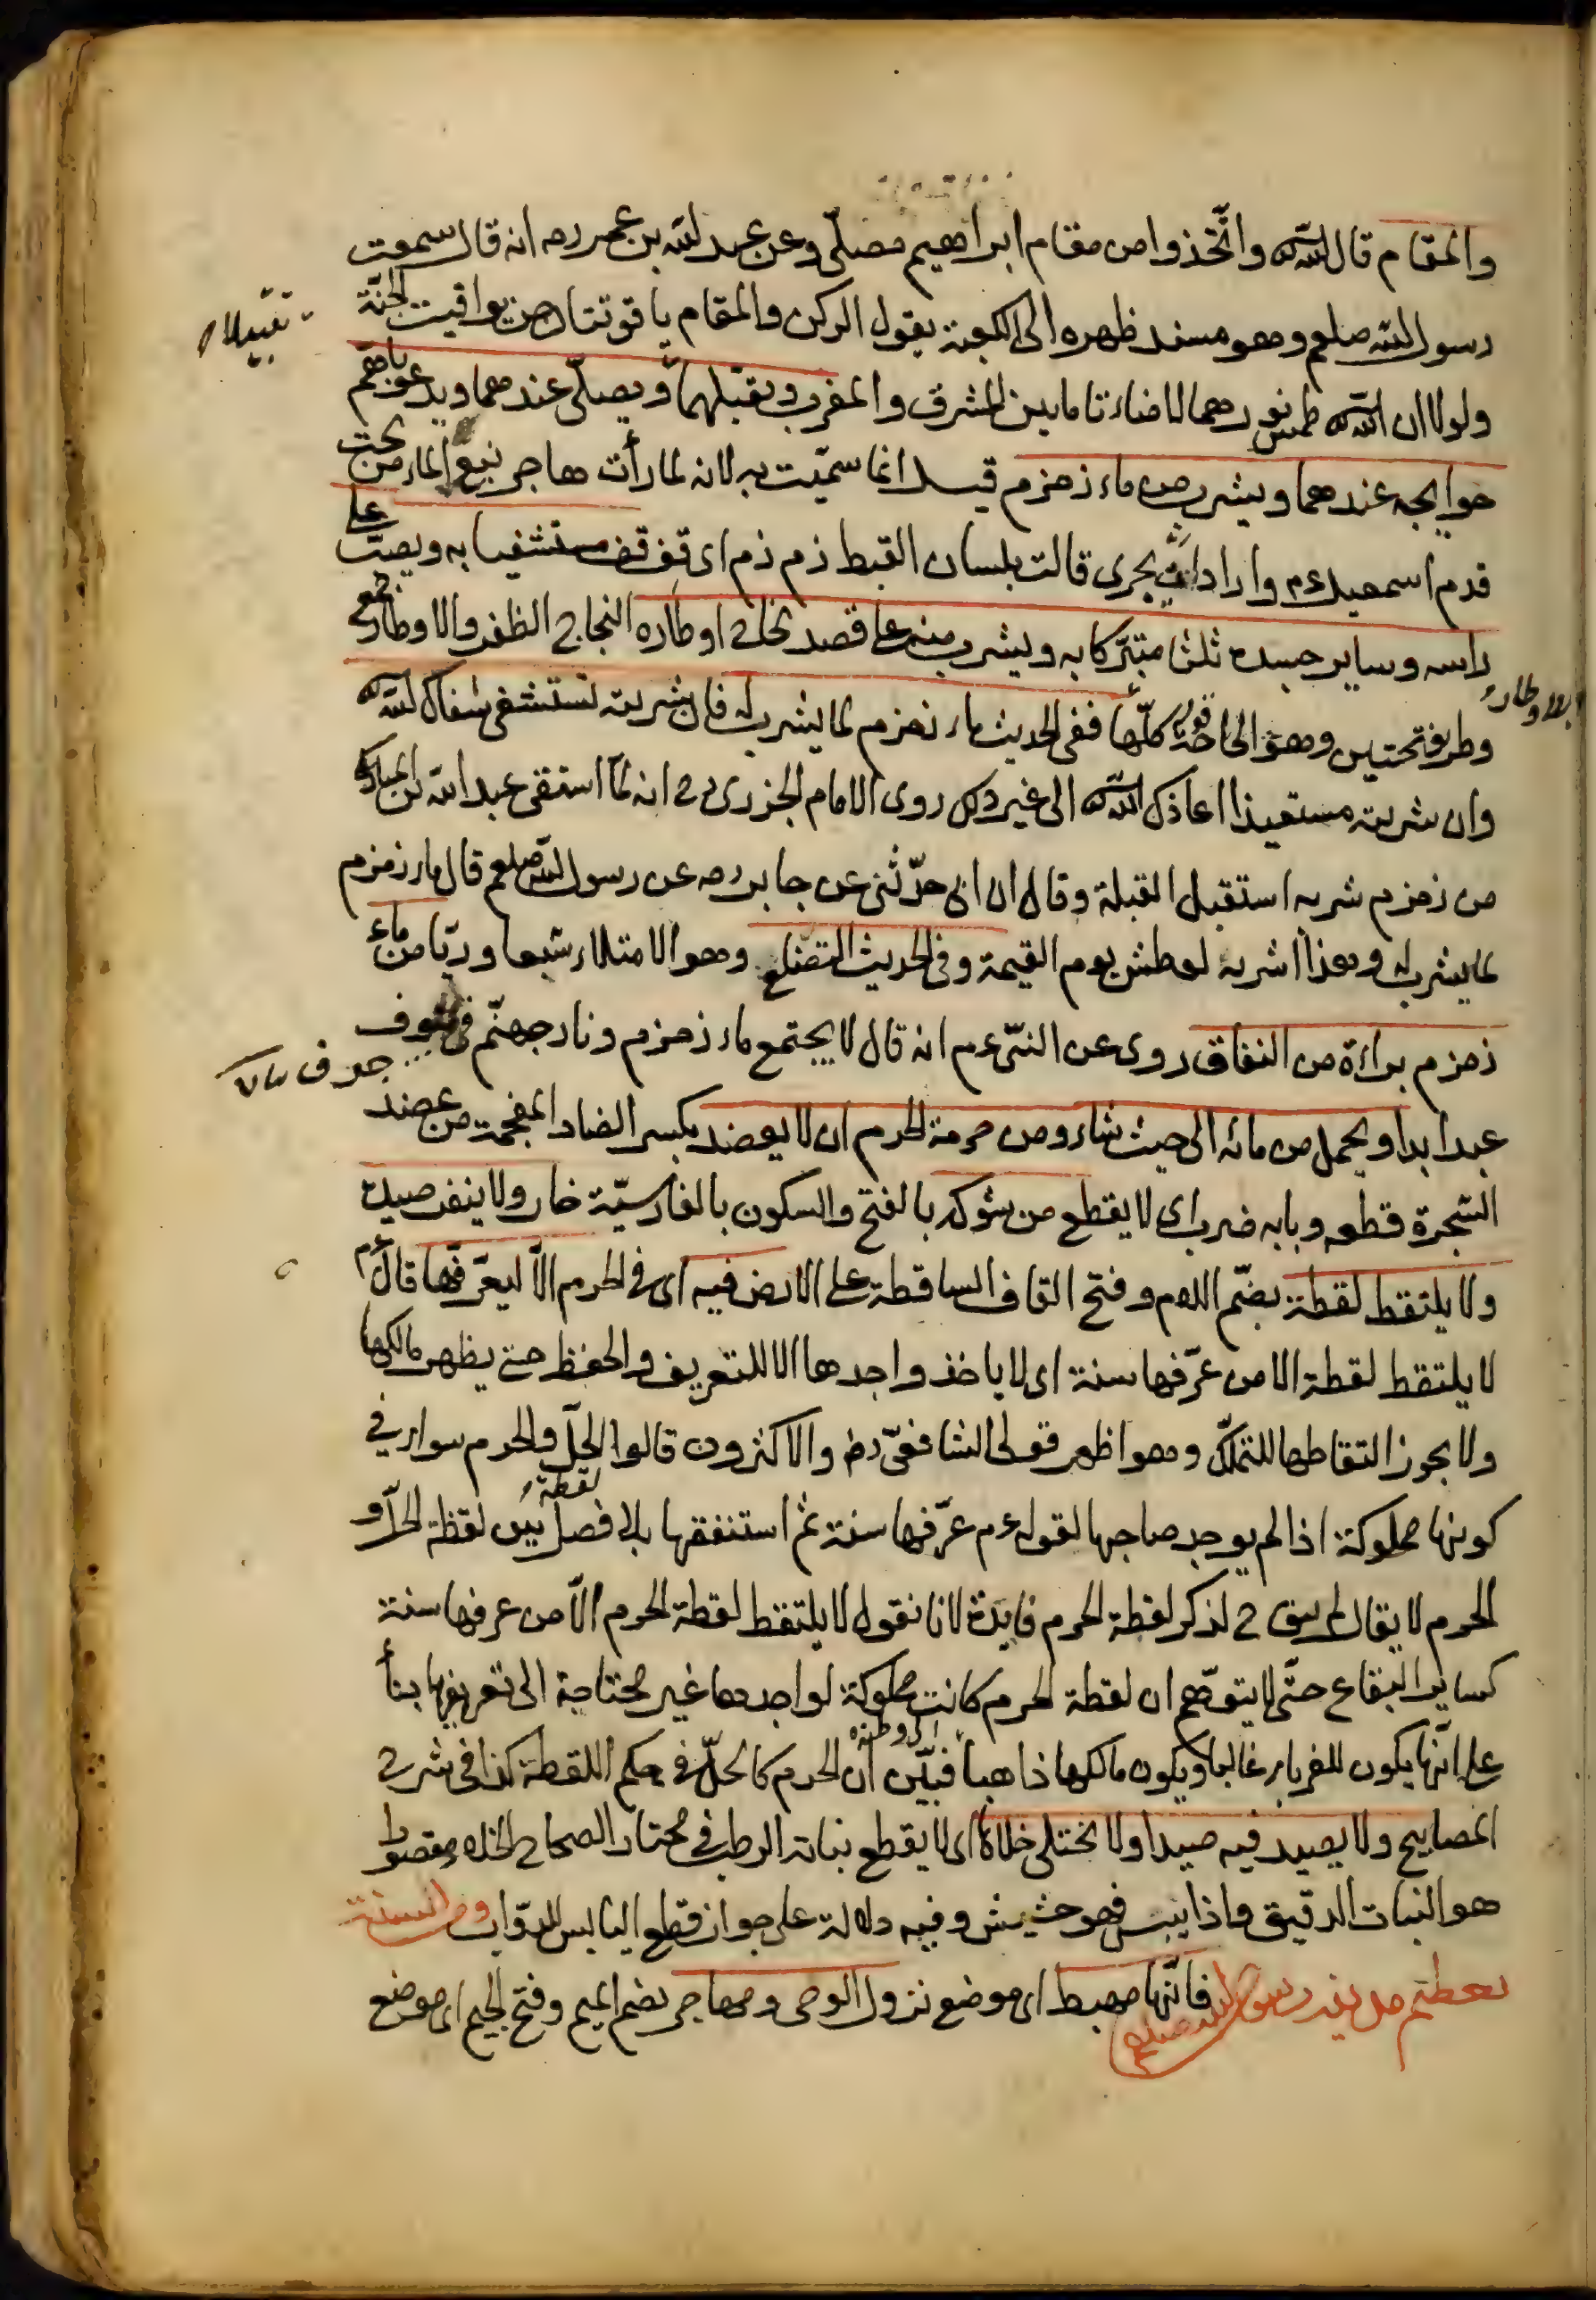 والمقام قال الله تع واتّخذوا من مقام ابراهيم مصلّى وعن عبد الله بن عمر رضه انه قال سمعت
رسول الله صلعم وهو مسند ظهره الى الكعبة يقول الركن والمقام ياقوتتان من يواقيت الجنّة
ولولا ان الله تع طمس نورهما لاضاءتا ما بين المشرق والمغرب ويقبّلهما ويصلّى عندهما ويدعو باهمّ
حوايجه عندهما ويشرب من ماء زمزم قيل انما سميّت به لانه لما رأت هاجر نبع الماء من تحت
قدم اسمعيل ع م وارادان يجرى قالت بلسان القبط زم زم اى قف قف مستشفيا به ويصبّ على
راسه وساير جسده ثلثا متبرّكا به ويشرب منه على قصد نجاح اوطاره النجاح الظفر والاوطار جمع
وطر بفتحتين وهو الحاجة كلّها ففى الحديث ماء زمزم لما يشرب له فان شربته تستشفى شفاك الله تع
وان شربته مستعيذا اعاذك الله تع الى غير ذلك روى الامام الجزرى رح انه لمّا استقى عبد الله بن المبارك
من زمزم شربه استقبل القبلة وقال ان ابى حدّثنى عن جابر رضه عن رسول الله صلعم قال ماء زمزم
لما يشرب له وهذا اشربه لعطش يوم القيمة وفى الحديث التضلّع وهو الامتلاء شبعا وريّا من ماء
زمزم براءة من النفاق روى عن النبىّ ع م انه قال لا يجتمع ماء زمزم ونار جهنّم فى جوف
عبد ابدا ويحمل من مائه الى حيث شاء ومن حرمة الحرم ان لا يعضد بكسر الضاد المعجمة من عضد
الشجرة قطعه وبابه ضرب اى لا يقطع من شوكه بالفتح والسكون بالفارسيّة خار ولا ينفر صيده
ولا يلتقط لقطته بضمّ اللام وفتح القاف الساقطة على الارض فيه اى فى الحرم الّا ليعرّفها قال ع م
لا يلتقط لقطة الا من عرّفها سنة اى لا ياخذ واجدها الا للتعريف والحفظ حتى يظهر مالكها
ولا يجوز التقاطها للتملّك وهو اظهر قولى الشافعىّ رح والاكثرون قالوا الحلّ والحرم سواء فى
كونها مملوكة اذا لم يوجد صاحبها لقوله ع م عرّفها سنة ثم استنفقها بلا فصل بين لقطة الحلّ و
لقطة
الحرم لا يقال لم يبق ح لذكر لقطة الحرم فايدة لانا نقول لا يلتقط لقطة الحرم الّا من عرفها سنة
كساير البقاع حتّى لا يتوهّم ان لقطة الحرم كانت مملوكة لواجدها غير محتاجة الى تعريفها بناء
على انّها يكون للغرباء غالبا ويكون مالكها ذاهبا فبيّن ان الحرم كالحلّ فى حكم اللقطة كذا فى شرح
الى وطنه
المصابيح ولا يصيد فيه صيدا ولا يختلى خلاه اى لا يقطع نباته الرطب فى مختار الصحاح الخلا مقصورا
هو النبات الدقيق واذا يبس فهو حشيش وفيه دلالة على جواز قطع اليابس للدوّاب ومن السنة
تعظيم مدينة رسول الله صلعم فانّها مهبط اى موضع نزول الوحى ومهاجر بضم الميم وفتح الجيم اى موضع